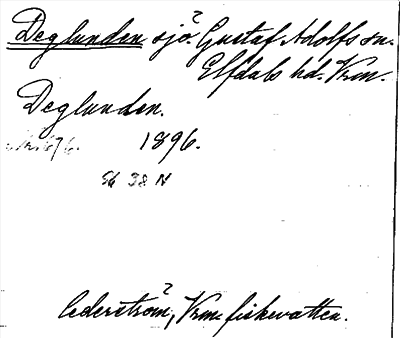 Deglunden sjö. Gustaf Adolfs sn.
Elfdals hd. Vrm.
Deglunden.
1896.
56 38 N
Cederström, Vrm. fiskevatten.